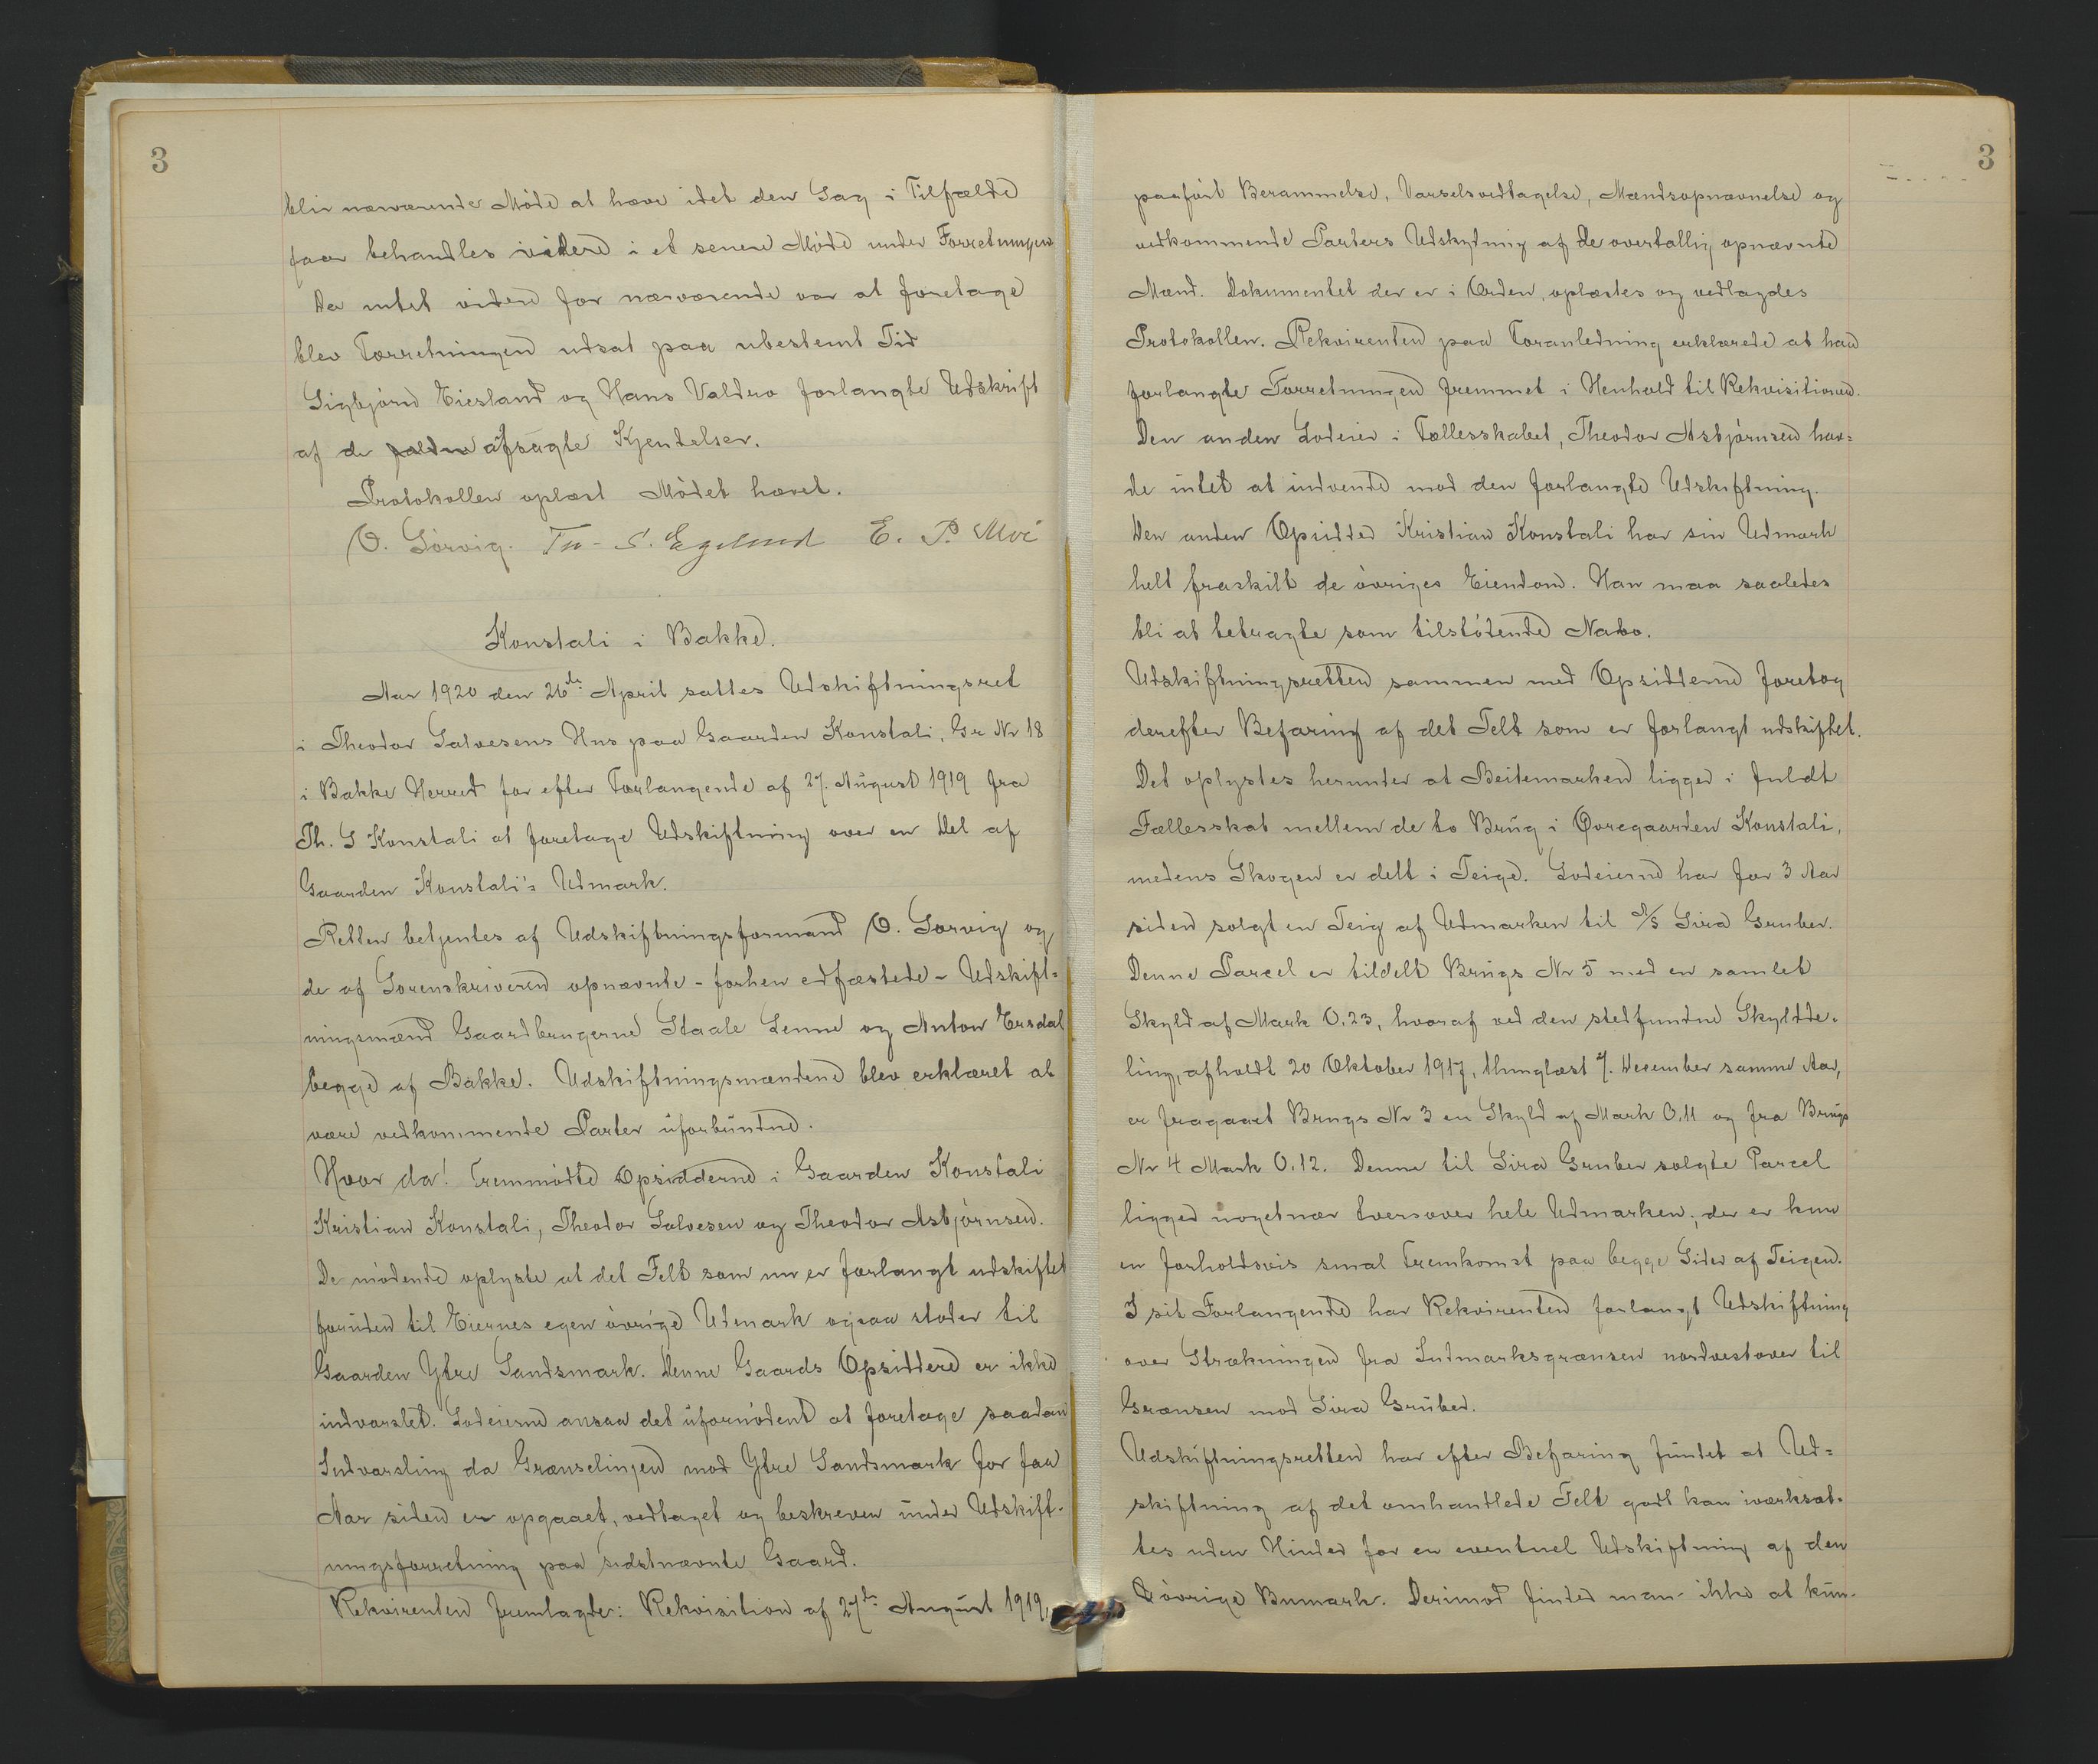 3
bliv nærværende Møde at hæve idet den Sag i Tilfælde
faar behandles videre i et senere Møde under Forretningen
Da intet videre for nærværende var at foretage
blev Forretningen udsat paa ubestemt Tid
Sigbjørn Eiesland og Hans Valdro forlangte Udskrift
af de afsagte Kjendelser.
Protokollen oplæst Mødet hævet.
O. Sørvig. S. Egeland E. P. Moi
Konstali i Bakke.
Aar 1920 den 26de April sattes Udskiftningsret
i Theodor Salvesens Hus paa Gaarden Konstali, Gr Nr 18
i Bakke Herred for efter Forlangende af 27. August 1919 fra
Th. S Konstali at foretage Udskiftning over en Del af
Gaarden Konstali's Udmark.
Retten betjentes af Udskiftningsformand O. Sørvig og
de af Sorenskriveren opnævnte - forhen edfæstede - Udskift=
ningsmænd Gaardbrugerne Staale Lenne og Anton Ersdal
begge af Bakke. Udskiftningsmændene blev erklæret at
være vedkommende Parter uforbundne.
Hvor da! Fremmødte Opsidderne i Gaarden Konstali
Kristian Konstali, Theodor Salvesen og Theodor Asbjørnsen.
De mødende oplyste at det Felt som nu er forlangt udskiftet
foruden til Eiernes egen øvrige Udmark ogsaa støder til
Gaarden Ytre Sandsmark. Denne Gaards Opsiddere er ikke
indvarslet. Lodeierne ansaa det ufornødent at foretage saadan
Indvarsling da Grænselinjen mod Ytre Sandsmark for faa
Aar siden er opgaaet, vedtaget og beskreven under Udskift-
ningsforretning paa sidstnævnte Gaard.
Rekvirenten fremlagde: Rekvisition af 27de August 1919,
3
paaført Berammelse, Varselsvedtagelse, Mændsopnævnelse og
vedkommende Parters Udskydning af de overtallig opnævnte
Mænd. Dokumentet der er i Orden, oplæstes og vedlagdes
Protokollen. Rekvirenten paa Foranledning erklærede at han
forlangte Forretningen fremmet i Henhold til Rekvisitionen.
Den anden Lodeier i Fællesskabet, Theodor Asbjørnsen hav=
de intet at indvende mod den forlangte Udskiftning.
Den anden Opsidder Kristian Konstali har sin Udmark
helt fraskilt de øvriges Eiendom. Han maa saaledes
bli at betragte som tilstødende Nabo.
Udskiftningsretten sammen med Opsidderne foretog
derefter Befaring af det Felt som er forlangt udskiftet.
Det oplystes herunder at Beitemarken ligger i fuldt
Fællesskab mellem de to Brug i Øvregaarden Konstali,
medens Skogen er delt i Teige. Lodeierne har for 3 Aar
siden solgt en Teig af Udmarken til A/S Sira Gruber.
Denne Parcel er tildelt Brugs Nr 5 med en samlet
Skyld af Mark 0,23, hvoraf ved den stedfundne Skyldde-
ling, afholdt 20 Oktober 1917, thinglæst 7. December samme Aar,
er fragaaet Brugs Nr 3 en Skyld af Mark 0,11 og fra Brugs
Nr 4 Mark 0,12. Denne til Sira Gruber solgte Parcel
ligger nogetnær tversover hele Udmarken, der er kun
en forholdsvis smal Fremkomst paa begge Sider af Teigen.
I sit Forlangende har Rekvirenten forlangt Udskiftning
over Strækningen fra Indmarksgrænsen nordvestover til
Grænsen mod Sira Gruber.
Udskiftningsretten har efter Befaring fundet at Ud=
skiftning af det omhandlede Felt godt kan iværksæt-
tes uden Hinder for en eventuel Udskiftning af den
øvrige Bumark. Derimod finder man ikke at kun-